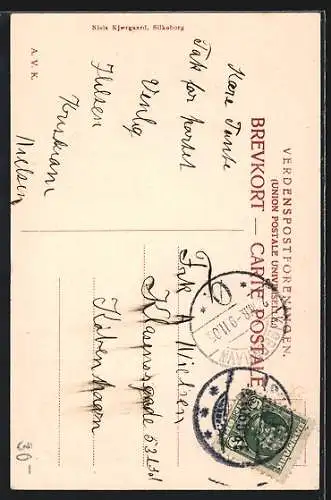 Niels Kjærgaard, Silkeborg
A. V. K.
VERDENSPOSTFORENINGEN.
(UNION POSTALE UNIVERSELLE.)
BREVKORT — CARTE POSTALE
Kære Tante
Tak for kortet
Venlig
Hilsen
Kristian
Nielsen
Frk A Nielsen
Klasensgade
Köbenhagen
30-